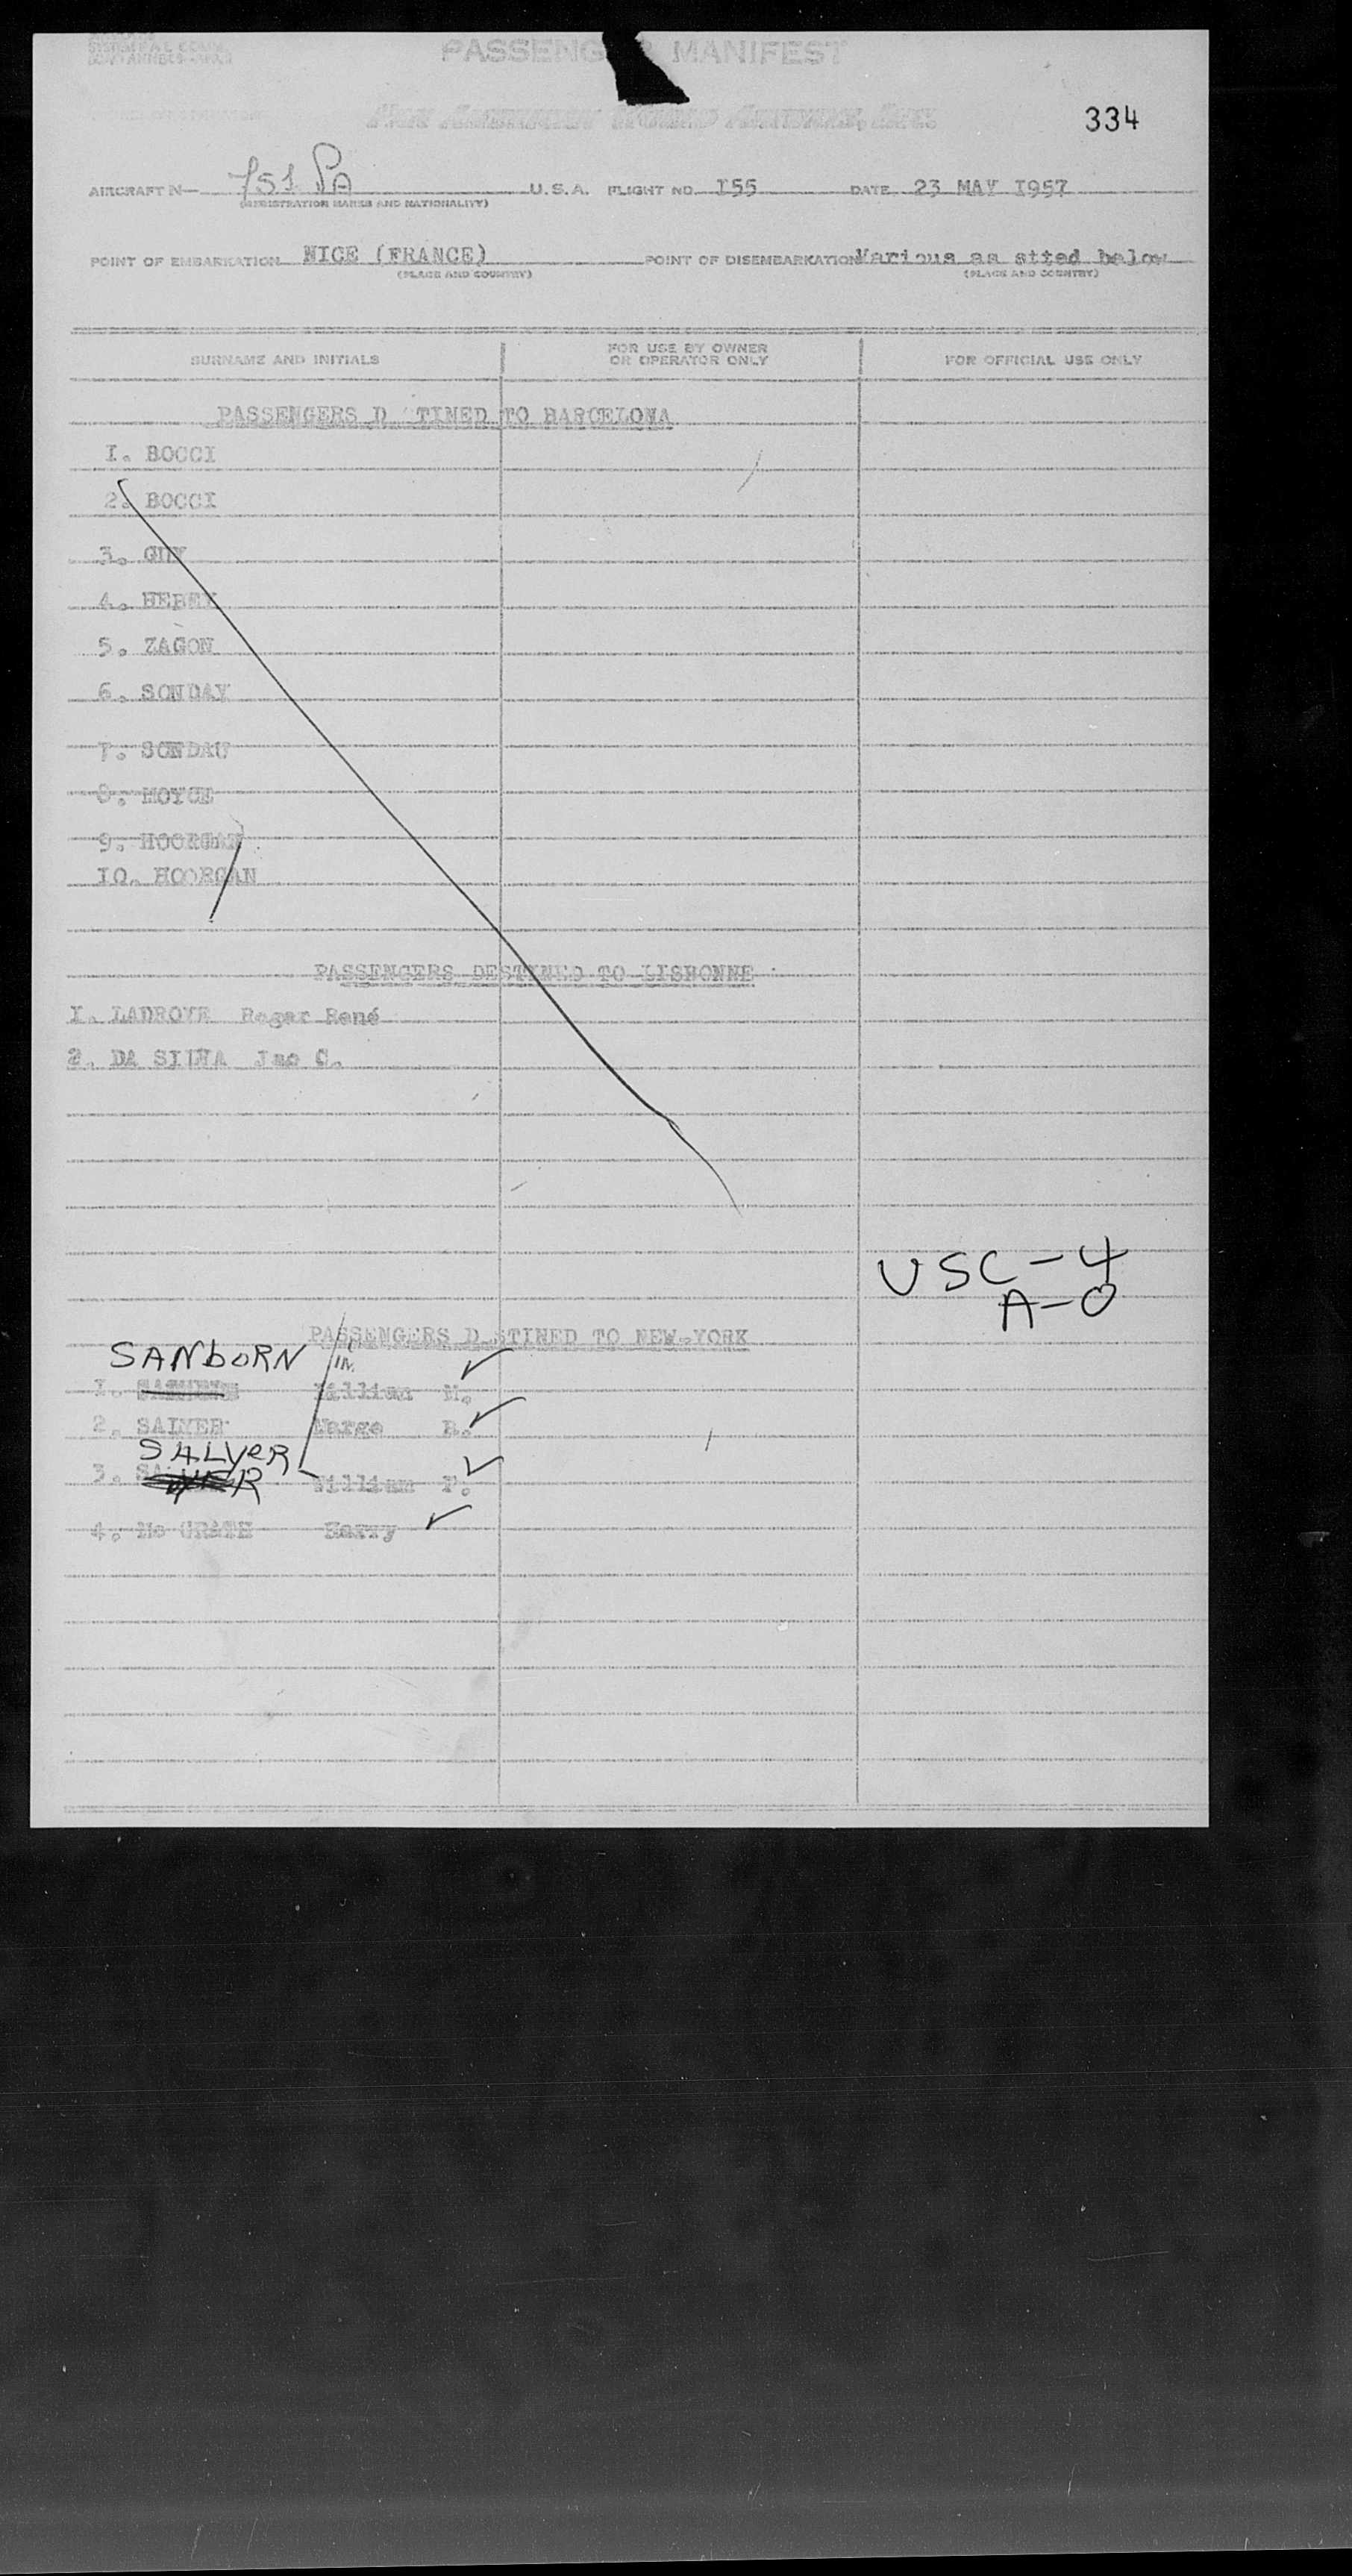 PASSENGER MANIFEST
334
AIRCRAFT N— 751 PA U.S.A. FLIGHT NO. I55 DATE 23 MAY I957
(REGISTRATION MARKS AND NATIONALITY)
POINT OF EMBARKATION NICE (FRANCE) POINT OF DISEMBARKATION Various as stted below
(PLACE AND COUNTRY) (PLACE AND COUNTRY)
SURNAME AND INITIALS
FOR USE BY OWNER
OR OPERATOR ONLY
FOR OFFICIAL USE ONLY
PASSENGERS D TINED TO BARCELONA
I. BOCCI
2. BOCCI
3. GUY
4.
5. ZAGON
6. SONDAY
7. SONDAU
8. MOYCE
9. HOORGAN
IO. HOORGAN
PASSENGERS DESTINED TO LISBONNE
I. Roger René
2. DA SILVA Jao C.
USC-4
A-0
PASSENGERS D STINED TO NEW-YORK
SANbORN
I. William M.
2. SALYER Marge B.
SALYER
3. William F.
4. Mc Harry